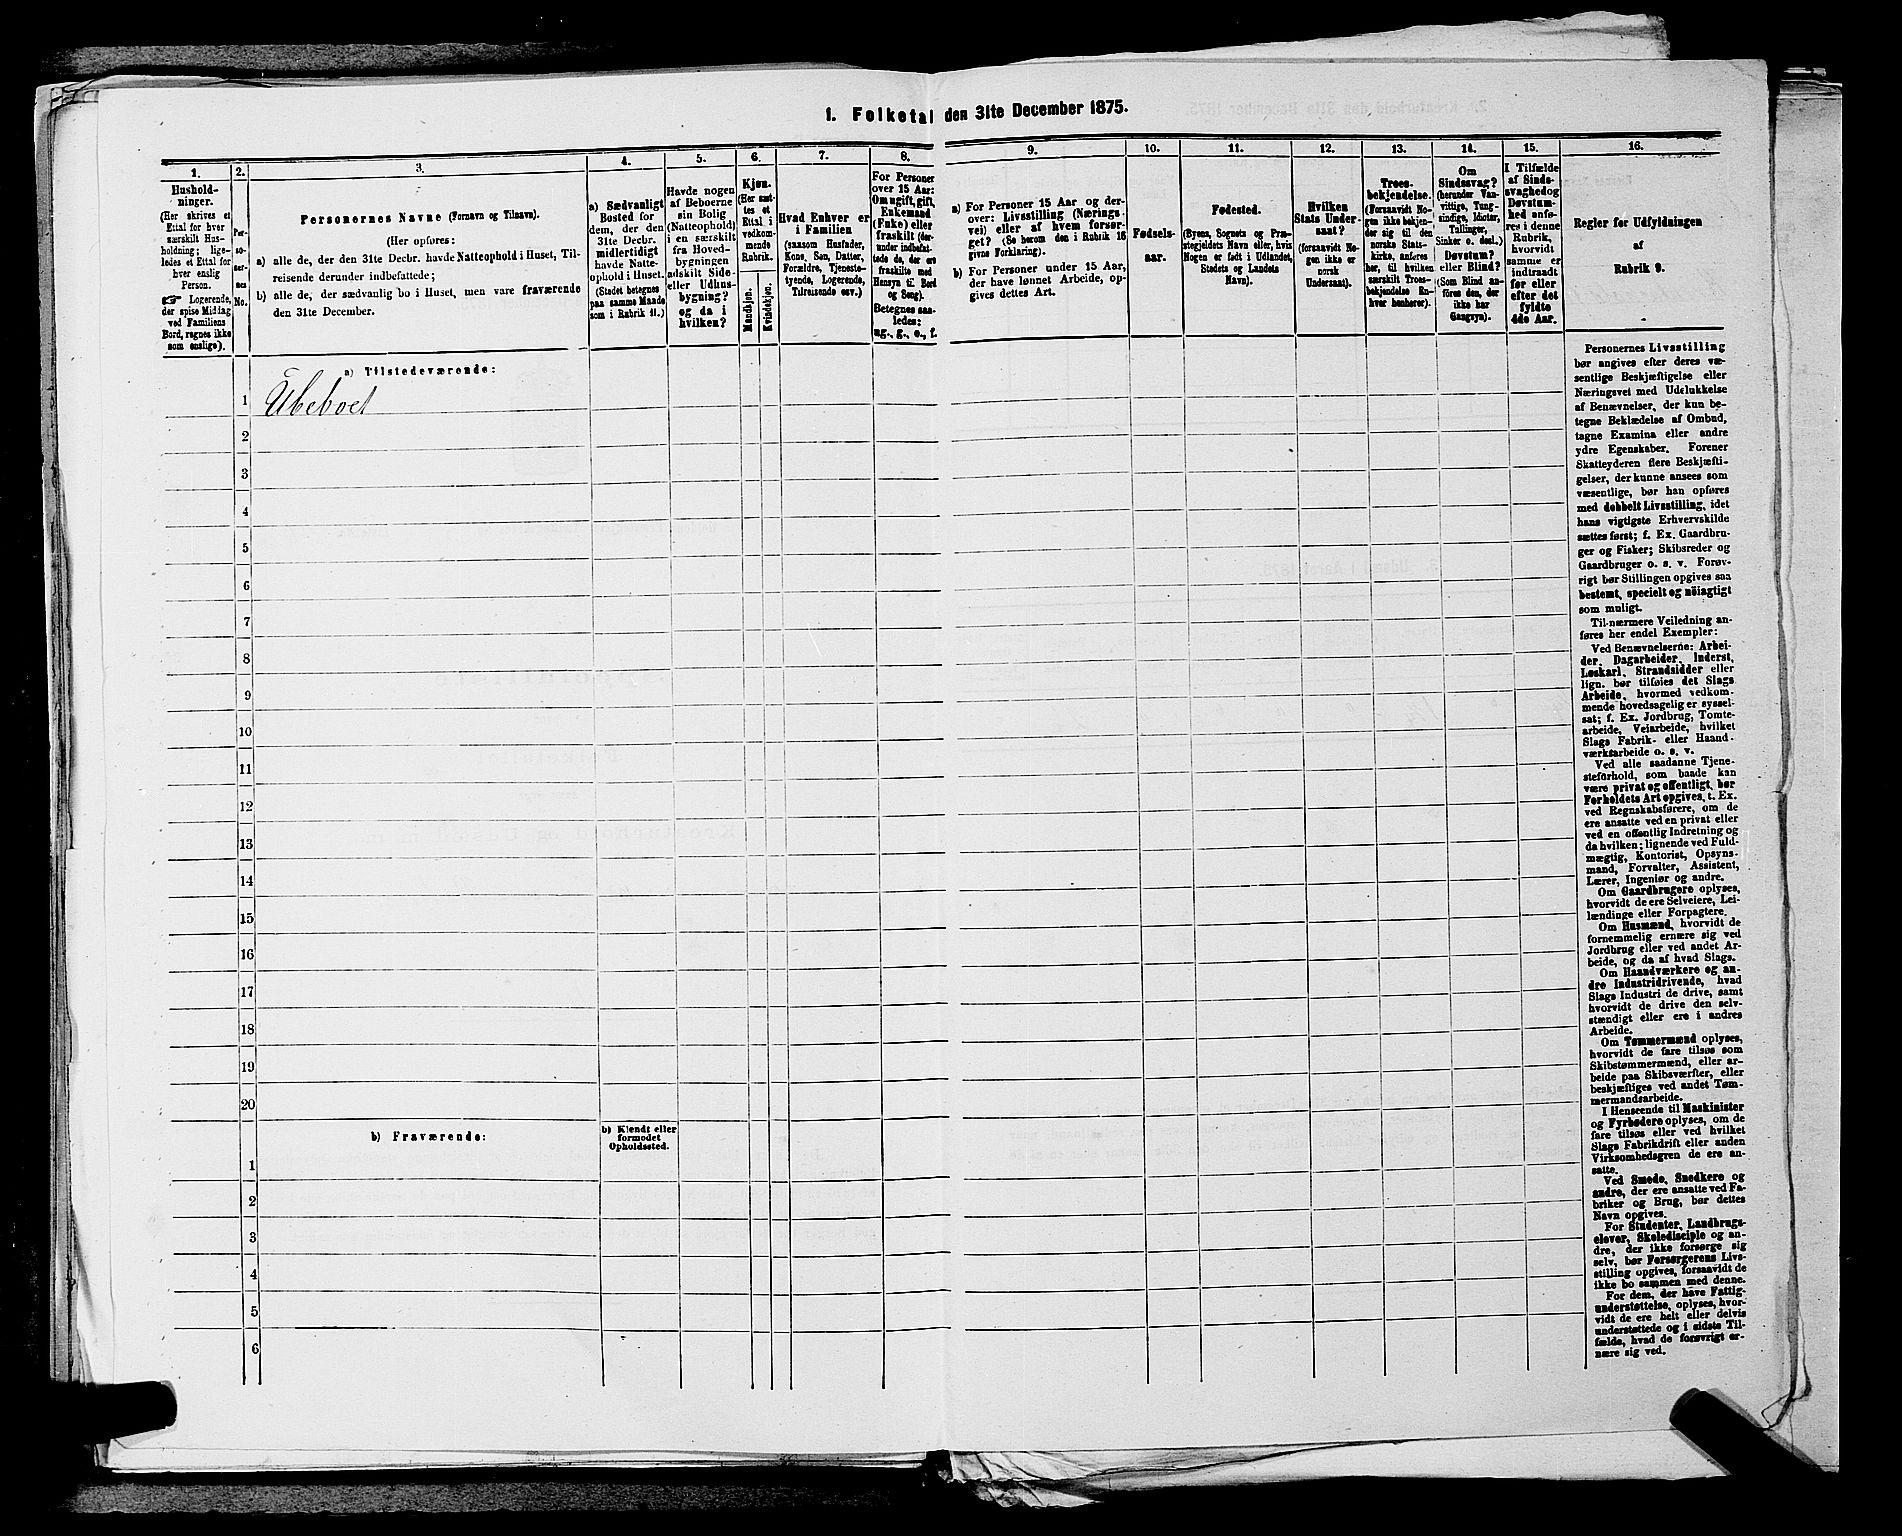 1. Folketal den 31te December 1875.
1.
Hushold-
ninger.
(Her skrives et
Ettal for hver
særskilt Hus-
holdning; lige-
ledes et Ettal for
hver enslig
Person.
☞ Logerende,
der spise Middag
ved Familiens
Bord, regnes ikke
som enslige).
2.
Per-
so-
ner-
nes
No.
3.
Personernes Navne (Fornavn og Tilnavn).
(Her opføres:
a) alle de, der den 31te Decbr. havde Natteophold i Huset, Til-
reisende derunder indbefattede;
b) alle de, der sædvanlig bo i Huset, men vare fraværende
den 31te December.
4.
a) Sædvanligt
Bosted for
dem, der den
31te Decbr.
midlertidigt
havde Natte-
ophold i Huset.
(Stedet betegnes
paa samme Maade
som i Rubrik 11.)
5.
Havde nogen
af Beboerne
sin Bolig
(Natteophold)
i en særskilt
fra Hoved-
bygningen
adskilt Side-
eller Udhus-
bygning?
og da i
hvilken?
6.
Kjøn.
(Her sæt-
tes et
Ettal i
vedkom-
mende
Rubrik.
Mandkjøn.
Kvindekjøn.
7.
Hvad Enhver er
i Familien
(saasom Husfader,
Kone, Søn, Datter,
Forældre, Tjeneste-
tyende, Logerende,
Tilreisende osv.)
8.
For Personer
over 15 Aar:
Om ugift, gift,
Enkemand
(Enke) eller
fraskilt (der-
under indbefat-
tede de, der ere
fraskilte med
Hensyn til Bord
og Seng).
Betegnes saa-
ledes:
ug., g., e., f.
9.
a) For Personer 15 Aar og der-
over: Livsstilling (Nærings-
vei) eller af hvem forsør-
get? (Se herom den i Rubrik 16
givne Forklaring).
b) For Personer under 15 Aar,
der have lønnet Arbeide, op-
gives dettes Art.
10.
Fødsels-
aar.
11.
Fødested.
(Byens, Sognets og Præ-
stegjeldets Navn eller, hvis
Nogen er født i Udlandet,
Stedets og Landets
Navn).
12.
Hvilken
Stats Under-
saat?
(forsaavidt No-
gen ikke er
norsk
Undersaat).
13.
Troes-
bekjendelse.
(Forsaavidt No-
gen ikke bekjen-
der sig til den
norske Stats-
kirke, anføres
her, til hvilken
særskilt Troes-
bekjendelse En-
hver henhører).
14.
Om
Sindssvag?
(herunder Van-
vittige, Tung-
sindige, Idioter,
Tullinger,
Sinker o. desl.)
Døvstum?
eller Blind?
(Som Blind an-
føres den, der
ikke har
Gangsyn).
15.
I Tilfælde
af Sinds-
svaghed og
Døvstum-
hed anfø-
res i denne
Rubrik,
hvorvidt
samme er
indtraadt
før eller
efter det
fyldte
4de Aar.
16.
Regler for Udfyldningen
af
Rubrik 9.
a) Tilstedeværende:
1 Ubeboet
2
3
4
5
6
7
8
9
10
11
12
13
14
15
16
17
18
19
20
b) Fraværende:
b) Kjendt eller
formodet
Opholdssted.
1
2
3
4
5
6
Personernes Livsstilling
bør angives efter deres væ-
sentlige Beskjæftigelse eller
Næringsvei med Udelukkelse
af Benævnelser, der kun be-
tegne Beklædelse af Ombud,
tagne Examina eller andre
ydre Egenskaber. Forener
Skatteyderen flere Beskjæfti-
gelser, der kunne ansees som
væsentlige, bør han opføres
med dobbelt Livsstilling, idet
hans vigtigste Erhvervskilde
sættes først; f. Ex. Gaardbru-
ger og Fisker; Skibsreder og
Gaardbruger o. s. v. Forøv-
rigt bør Stillingen opgives saa
bestemt, specielt og nøiagtigt
som muligt.
Til nærmere Veiledning an-
føres her endel Exempler:
Ved Benævnelserne: Arbei-
der, Dagarbeider, Inderst,
Løskarl, Strandsidder eller
lign. bør tilføies det Slags
Arbeide, hvormed vedkom-
mende hovedsagelig er syssel-
sat; f. Ex. Jordbrug, Tomte-
arbeide, Veiarbeide, hvilket
Slags Fabrik- eller Haand-
værksarbeide o. s. v.
Ved alle saadanne Tjene-
steforhold, som baade kan
være privat og offentligt, bør
Forholdets Art opgives, t. Ex.
ved Regnskabsførere, om de
ere ansatte ved en privat eller
ved en offentlig Indretning og
da hvilken; lignende ved Fuld-
mægtig, Kontorist, Opsyns-
mand, Forvalter, Assistent,
Lærer, Ingeniør og andre.
Om Gaardbrugere oplyses,
hvorvidt de ere Selveiere, Lei-
lændinge eller Forpagtere.
Om Husmænd, hvorvidt de
fornemmelig ernære sig ved
Jordbrug eller ved andet Ar-
beide, og da af hvad Slags.
Om Haandværkere og an-
dre Industridrivende, hvad
Slags Industri de drive, samt
hvorvidt de drive den selv-
stændigt eller ere i andres
Arbeide.
Om Tømmermænd oplyses,
hvorvidt de fare tilsøs som
Skibstømmermænd, eller ar-
beide paa Skibsværfter, eller
beskjæftiges ved andet Tøm-
mermandsarbeide.
I Henseende til Maskinister
og Fyrbødere oplyses, om de
fare tilsøs eller ved hvilket
Slags Fabrikdrift eller anden
Virksomhedsgren de ere an-
satte.
Ved Smede, Snedkere og
andre, der ere ansatte ved Fa-
briker og Brug, bør dettes
Navn opgives.
For Studenter, Landbrugs-
elever, Skoledisciple og an-
dre, der ikke forsørge sig
selv, bør Forsørgerens Livs-
stilling opgives, forsaavidt de
ikke bo sammen med denne.
For dem, der have Fattig-
understøttelse, oplyses, hvor-
vidt de ere helt eller delvis
understøttede og i sidste Til-
fælde, hvad de forøvrigt er-
nære sig ved.